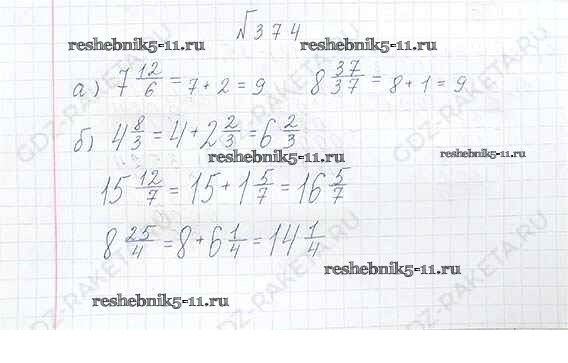 № 374
reshebnik5-11.ru
reshebnik5-11.ru
а) 7 12/6 = 7 + 2 = 9 8 37/37 = 8 + 1 = 9
б) 4 8/3 = 4 + 2 2/3 = 6 2/3
reshebnik5-11.ru
reshebnik5-11.ru
15 12/7 = 15 + 1 5/7 = 16 5/7
8 25/4 = 8 + 6 1/4 = 14 1/4
reshebnik5-11.ru
reshebnik5-11.ru
GDZ-RAKETA.RU